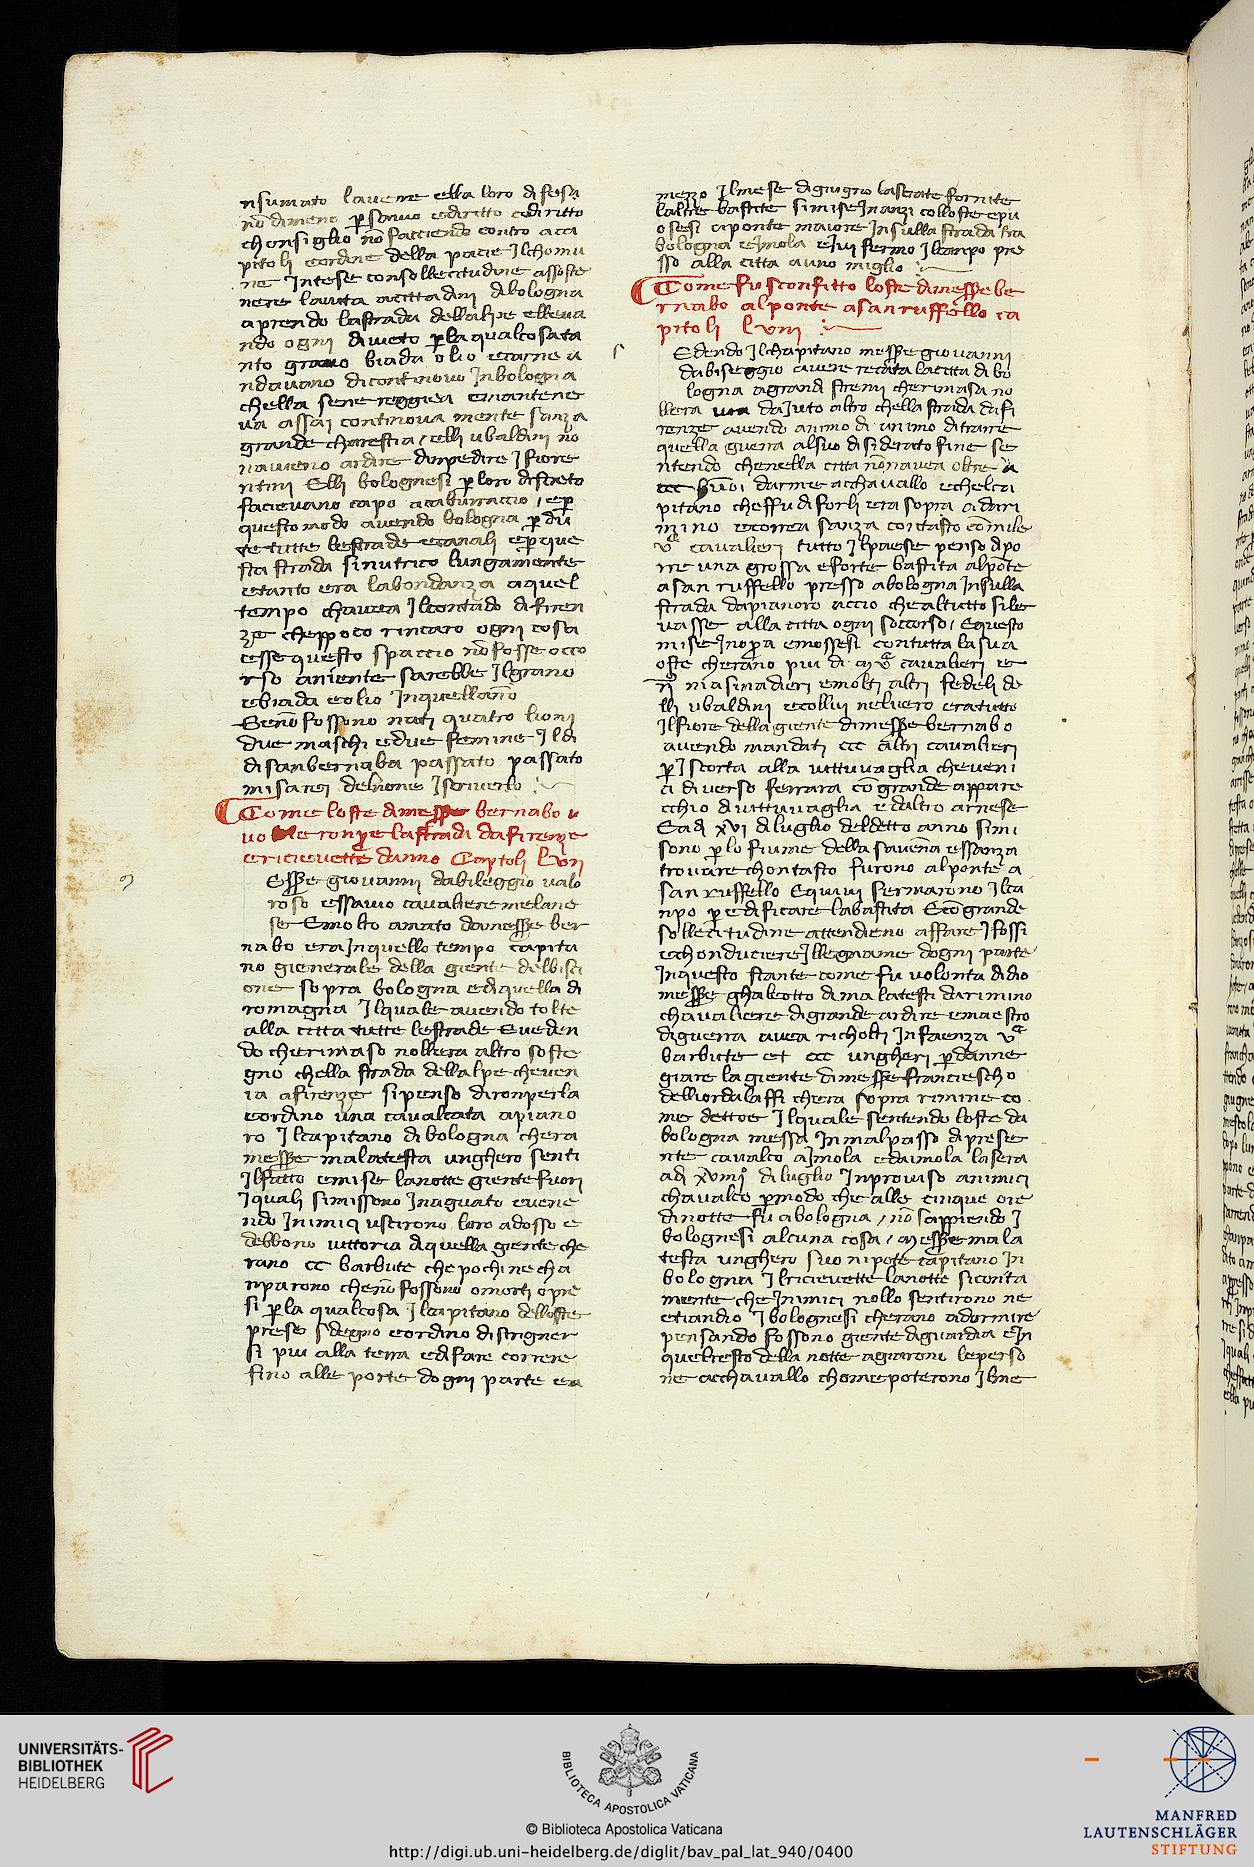 nsumato lavere ella loro difesa
nō dimeno ꝑ savio e diritto ediritto
chonsiglio nō facciendo contro a ca
pitoli e ordine della pacie Il chomu
ne Intese con sollecitudine assoste
nere la vita a cittadini di bologna
aprendo la strada dellalpe e lleva
ndo ogni diveto ꝑ la qual cosa ta
nto grano biada olio e carne a
ndavano di continovo In bologna
chella se ne reggiea e mantene
va assai continova mente sanza
grande charestia / elli ubaldini nō
navieno ardire dinpedire I fiore
ntini Elli bolognesi ꝑ loro distreto
facievano capo a caburraccio / e ꝑ
questo modo avendo bologna ꝑ du
te tutte le strade e canali e ꝑ que
sta strada si nutrico lungamente
e tanto era labondanza a quel
tempo chavea Il contado di firen
ze che ppoco rincaro ogni cosa
e sse questo spaccio nō fosse occo
rso a niente sarebbe Il grano
e biada e olio In quellano
Se nō fossono nati quatro lioni
due maschi e due femine Il di
di san bernaba passato passato
mi sarei del none Iscriverlo
Come loste di messꝑ bernabo v
uo le ronpere la strada da firenze
e ricievette danno Capitoli lvii
Essꝑe giovanni dabileggio valo
roso e ssavio cavaliere melane
se E molto amato da messꝑ ber
nabo era In quello tempo capita
no gienerale della giente del bisci
one sopra bologna e di quella di
romagna Il quale avendo tolte
alla citta tutte le strade E veden
do che rimaso nollera altro soste
gno chella strada dellalpe che ven
ia a firenze si penso di ronperla
e ordino una cavalcata a piano
ro Il capitano di bologna chera
messꝑe malatesta unghero senti
Il fatto e mise la notte giente fuori
I quali si missono In aguato e vene
ndo I nimici uscirono loro adosso e
debbono vittoria di quella giente che
rano cc barbute che pochi ne cha
nparono che nō fossono o morti o pre
si ꝑ la qual cosa Il capitano delloste
prese sdegno e ordino di strigner
si piu alla terra e di fare correre
fino alle porte dogni parte e a
mezzo Il mese di giugno lasciate fornite
laltre bastite si mise Inanzi collo ste e pu
osesi a ponte maiore In sulla strada tra
bologna e Imola e Ivi fermo Il canpo pre
sso alla citta a uno miglio
Come fu sconfitto loste di messꝑe be
rnabo al ponte a san ruffello ca
pitoli lviii
Edendo Il chapitano messꝑe giovanni
da biseggio avere recata la citta di bo
logna a grandi stremi che rimasa no
llera via da Iuto altro chella strada di fi
renze avendo animo di animo di trarre
quella guerra al suo disiderato fine se
ntendo che nella citta nō navea oltre a
ccc buoi darme a cchavallo e chel ca
pitano che ffu di forli era sopra a dari
mino e correa sanza contasto con mille
vc cavalieri tutto Il paese penso di po
rre una grossa e forte bastita al ponte
a san ruffello presso a bologna In sulla
strada da pianoro accio che al tutto si le
vasse alla citta ogni soccorso / E questo
mise In opa e mossesi con tutta la sua
oste cherano piu di m vc cavalieri e
masinadieri e molti altri fedeli de
lli ubaldini e collui nel vero era tutto
Il fiore della giente di messꝑe bernabo
avendo mandati ccc altri cavalieri
ꝑ Iscorta alla vittuvaglia che veni
a di verso ferrara cō grande appare
cchio di vittuvaglia e daltro arnese
E a di xvi di luglio del detto anno si mi
sono ꝑ lo fiume della savena e ssanza
trovare chontasto furono al ponte a
san ruffello E quivi fermarono Il ca
npo ꝑ edificare la bastita E cō grande
sollecitudine attendieno a ffare I fossi
e chonduciere Il legniame dogni parte
In questo stante come fu volonta di dio
messꝑe ghaleotto di malatesti da rimino
chavaliere di grande ardire e maestro
di guerra avea richolti In faenza vc
barbute et ccc ungheri ꝑ danne
giare la giente di messꝑe franciescho
delli ordalaffi chera sopra rimine co
me dettoe Il quale sentendo loste da
bologna messa In mal passo di prese
nte cavalco a Imola e da imola la sera
a di xviii di luglio In proviso a nimici
chavalco ꝑ modo che alle cinque ore
di notte fu a bologna / nō sappiendo I
bolognesi alcuna cosa / messꝑe mala
testa unghero suo nipote capitano In
bologna Il ricievette la notte si conta
mente che I nimici nollo sentirono ne
etiandio I bolognesi cherano a dormire
pensando fossono giente di guardia e In
quel resto della notte agiaroni le perso
ne a cchavallo chome poterono Il me
UNIVERSITÄTS-
BIBLIOTHEK
HEIDELBERG
BIBLIOTECA APOSTOLICA VATICANA
© Biblioteca Apostolica Vaticana
http://digi.ub.uni-heidelberg.de/diglit/bav_pal_lat_940/0400
MANFRED
LAUTENSCHLÄGER
STIFTUNG